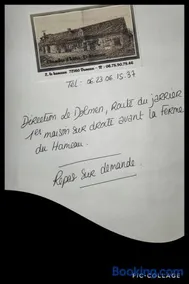 TEL: 06.23.06.15.37
Direction de Dolmen, Route du jarrier
1er maison sur droite avant la Ferme
du Hameau.
Repas sur demande.
PIC•COLLAGE
Booking.com